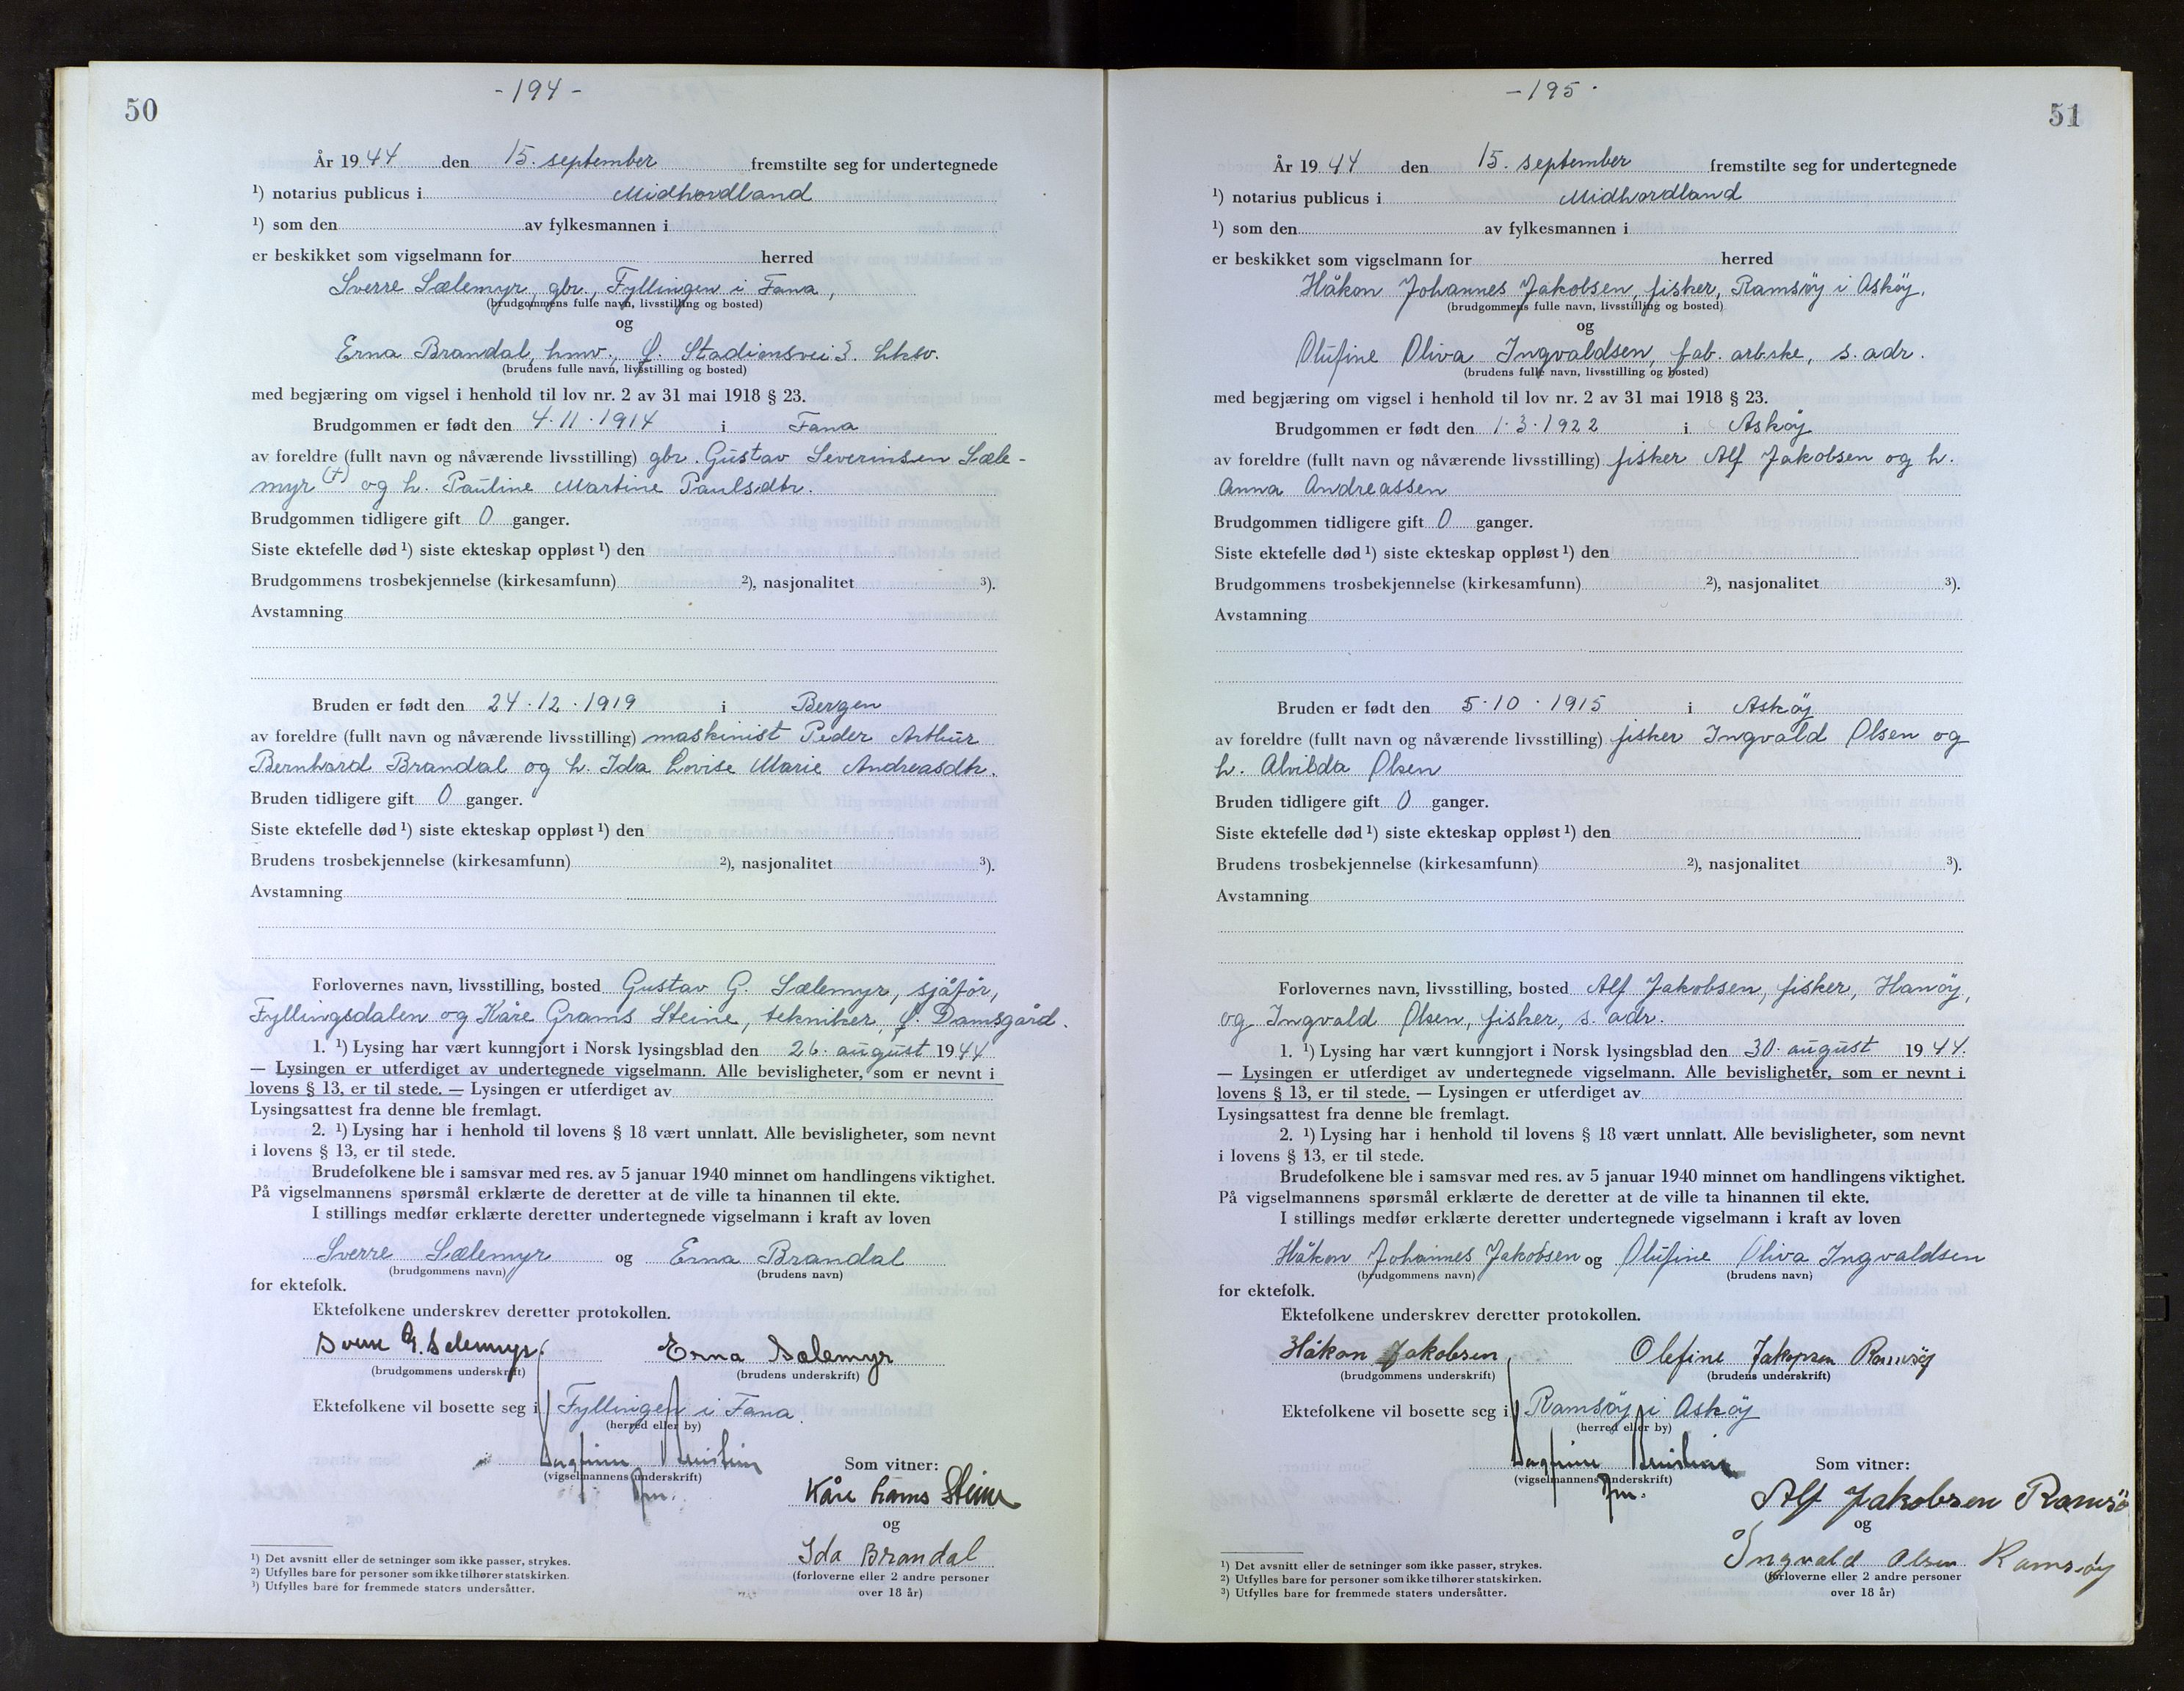 50
- 194 -
År 1944 den 15. september fremstilte seg for undertegnede
¹) notarius publicus i Midhordland
¹) som den av fylkesmannen i
er beskikket som vigselmann for herred
Sverre Sælemyr, gbr., Fyllingen i Fana,
(brudgommens fulle navn, livsstilling og bosted)
og
Erna Brandal, hmv., f. Stadionsvei 3. Lksv.
(brudens fulle navn, livsstilling og bosted)
med begjæring om vigsel i henhold til lov nr. 2 av 31 mai 1918 § 23.
Brudgommen er født den 4.11.1914 i Fana
av foreldre (fullt navn og nåværende livsstilling) gbr. Gustav Severinsen Sæle-
myr (†) og h. Pauline Martine Paulsdtr.
Brudgommen tidligere gift 0 ganger.
Siste ektefelle død ¹) siste ekteskap oppløst ¹) den
Brudgommens trosbekjennelse (kirkesamfunn) ²), nasjonalitet ³).
Avstamning
Bruden er født den 24.12.1919 i Bergen
av foreldre (fullt navn og nåværende livsstilling) maskinist Peder Arthur
Bernhard Brandal og h. Ida Lovise Marie Andreasdtr.
Bruden tidligere gift 0 ganger.
Siste ektefelle død ¹) siste ekteskap oppløst ¹) den
Brudens trosbekjennelse (kirkesamfunn) ²), nasjonalitet ³).
Avstamning
Forlovernes navn, livsstilling, bosted Gustav G. Sælemyr, sjåfør,
Fyllingsdalen og Kåre Grams Steine, tekniker, f. Damsgård.
1. ¹) Lysing har vært kunngjort i Norsk lysingsblad den 26. august 1944
— Lysingen er utferdiget av undertegnede vigselmann. Alle bevisligheter, som er nevnt i
lovens § 13, er til stede. — Lysingen er utferdiget av
Lysingsattest fra denne ble fremlagt.
2. ¹) Lysing har i henhold til lovens § 18 vært unnlatt. Alle bevisligheter, som nevnt
i lovens § 13, er til stede.
Brudefolkene ble i samsvar med res. av 5 januar 1940 minnet om handlingens viktighet.
På vigselmannens spørsmål erklærte de deretter at de ville ta hinannen til ekte.
I stillings medfør erklærte deretter undertegnede vigselmann i kraft av loven
Sverre Sælemyr og Erna Brandal
(brudgommens navn) (brudens navn)
for ektefolk.
Ektefolkene underskrev deretter protokollen.
Sverre G. Sælemyr. Erna Sælemyr
(brudgommens underskrift) (brudens underskrift)
Ektefolkene vil bosette seg i Fyllingen i Fana.
(herred eller by)
(vigselmannens underskrift)
Som vitner:
Kåre Grams Steine
og
Ida Brandal
(forloverne eller 2 andre personer
over 18 år)
¹) Det avsnitt eller de setninger som ikke passer, strykes.
²) Utfylles bare for personer som ikke tilhører statskirken.
³) Utfylles bare for fremmede staters undersåtter.
51
- 195 -
År 1944 den 15. september fremstilte seg for undertegnede
¹) notarius publicus i Midhordland
¹) som den av fylkesmannen i
er beskikket som vigselmann for herred
Håkon Johannes Jakobsen, fisker, Ramsöy i Asköy.
(brudgommens fulle navn, livsstilling og bosted)
og
Olufine Oliva Ingvaldsen, fab. arbske, s. adr.
(brudens fulle navn, livsstilling og bosted)
med begjæring om vigsel i henhold til lov nr. 2 av 31 mai 1918 § 23.
Brudgommen er født den 1.3.1922 i Asköy
av foreldre (fullt navn og nåværende livsstilling) fisker Alf Jakobsen og h.
Anna Andreassen
Brudgommen tidligere gift 0 ganger.
Siste ektefelle død ¹) siste ekteskap oppløst ¹) den
Brudgommens trosbekjennelse (kirkesamfunn) ²), nasjonalitet ³).
Avstamning
Bruden er født den 5.10.1915 i Asköy
av foreldre (fullt navn og nåværende livsstilling) fisker Ingvald Olsen og
h. Alvilda Olsen
Bruden tidligere gift 0 ganger.
Siste ektefelle død ¹) siste ekteskap oppløst ¹) den
Brudens trosbekjennelse (kirkesamfunn) ²), nasjonalitet ³).
Avstamning
Forlovernes navn, livsstilling, bosted Alf Jakobsen, fisker, Hanöy,
og Ingvald Olsen, fisker, s. adr.
1. ¹) Lysing har vært kunngjort i Norsk lysingsblad den 30. august 1944.
— Lysingen er utferdiget av undertegnede vigselmann. Alle bevisligheter, som er nevnt i
lovens § 13, er til stede. — Lysingen er utferdiget av
Lysingsattest fra denne ble fremlagt.
2. ¹) Lysing har i henhold til lovens § 18 vært unnlatt. Alle bevisligheter, som nevnt
i lovens § 13, er til stede.
Brudefolkene ble i samsvar med res. av 5 januar 1940 minnet om handlingens viktighet.
På vigselmannens spørsmål erklærte de deretter at de ville ta hinannen til ekte.
I stillings medfør erklærte deretter undertegnede vigselmann i kraft av loven
Håkon Johannes Jakobsen og Olufine Oliva Ingvaldsen
(brudgommens navn) (brudens navn)
for ektefolk.
Ektefolkene underskrev deretter protokollen.
Håkon Jakobsen Olefine Jakopsen Ramsöy
(brudgommens underskrift) (brudens underskrift)
Ektefolkene vil bosette seg i Ramsöy i Asköy
(herred eller by)
(vigselmannens underskrift)
Som vitner:
Alf Jakobsen Ramsö
og
Ingvald Olsen Ramsöy
(forloverne eller 2 andre personer
over 18 år)
¹) Det avsnitt eller de setninger som ikke passer, strykes.
²) Utfylles bare for personer som ikke tilhører statskirken.
³) Utfylles bare for fremmede staters undersåtter.